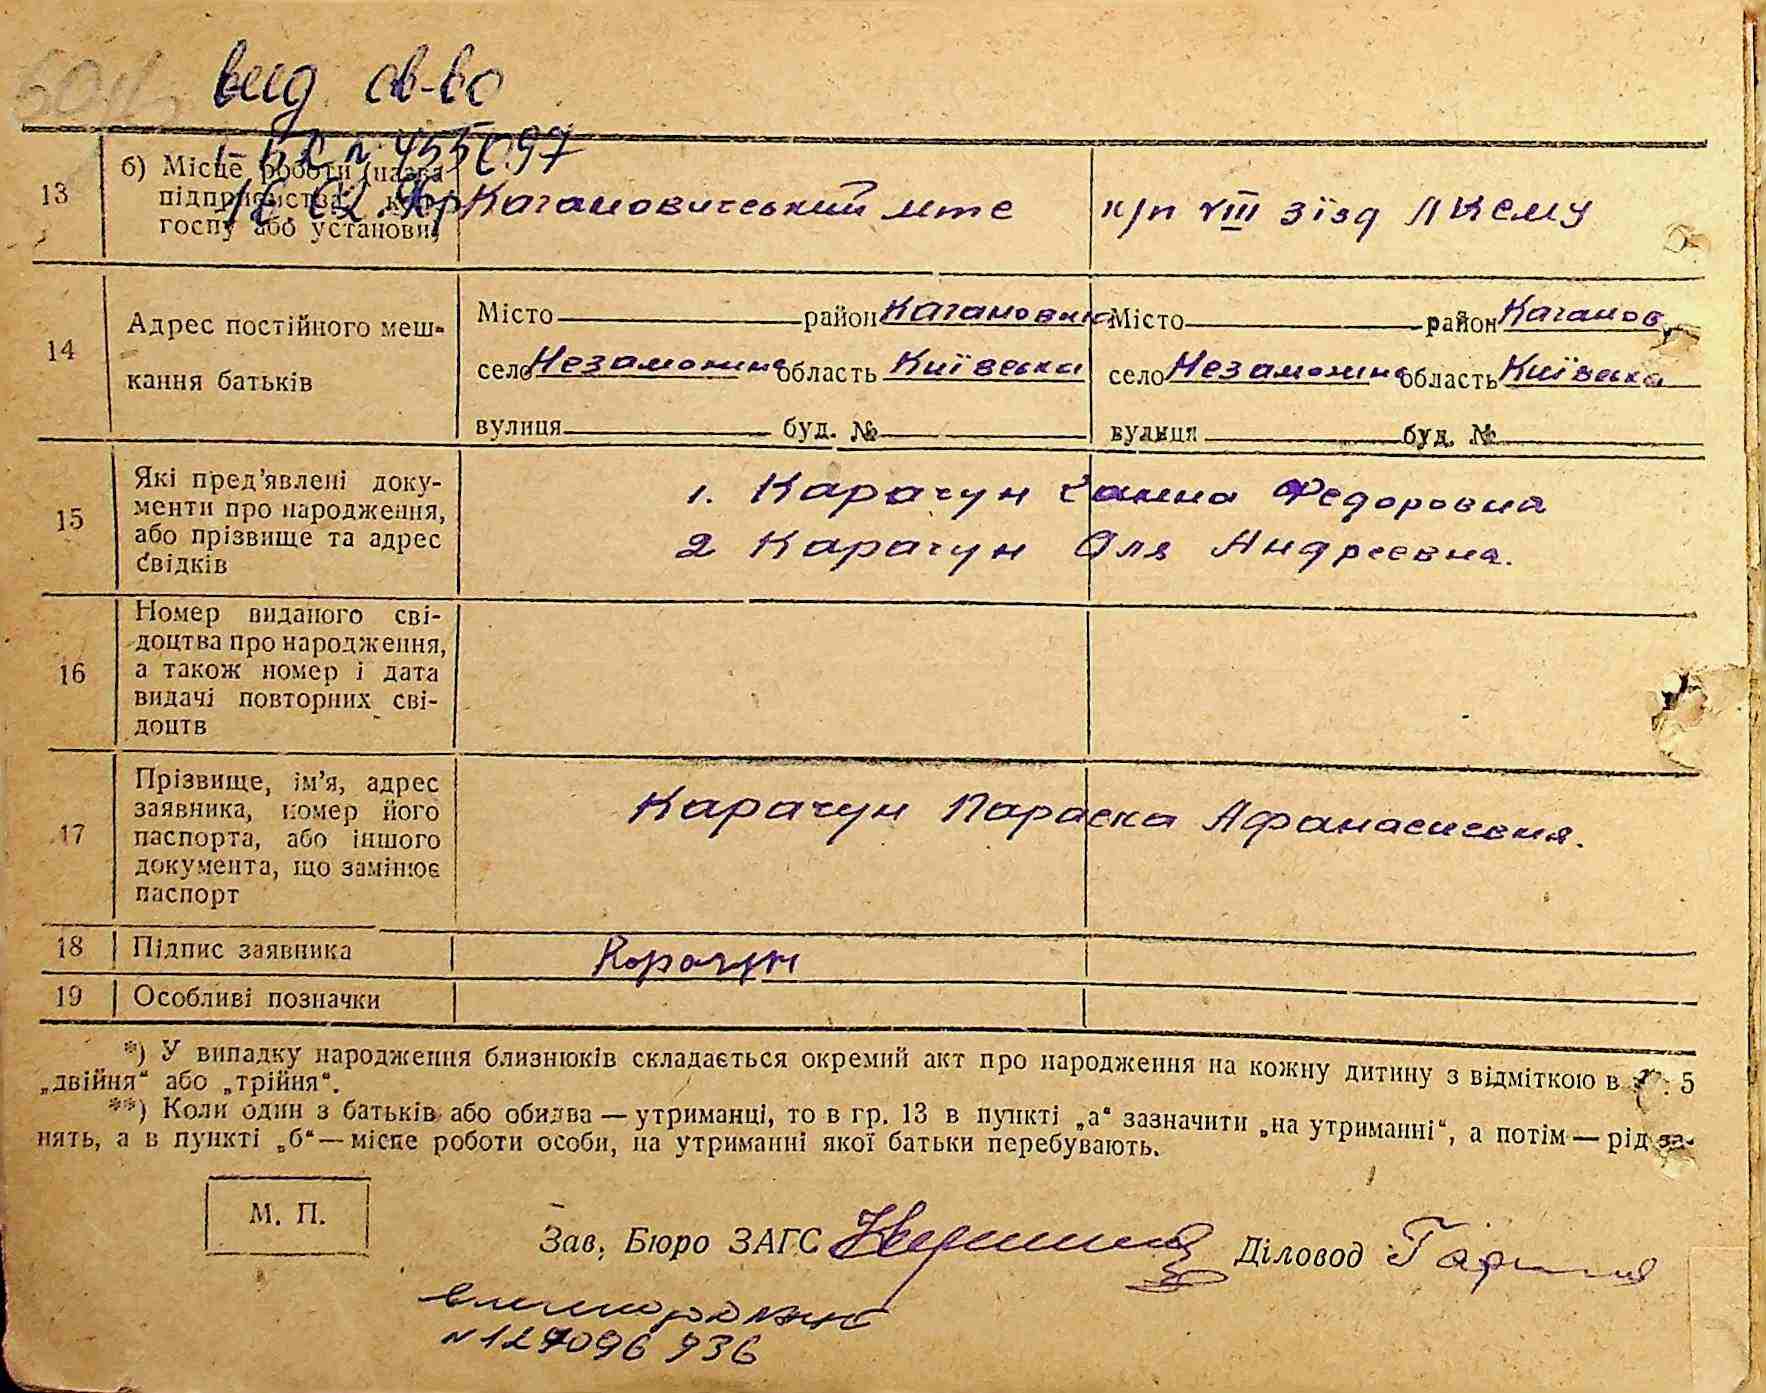 вид св-во
13
б) Місце роботи (назва
підприємства, кол-
госпу або установи)
Кагановичеський мте
к/п VIII зїзд ЛКСМУ
14
Адрес постійного меш-
кання батьків
Місто район Кагановиче
село Незаможня область Київська
вулиця буд. №
Місто район Каганов
село Незаможня область Київська
вулиця буд. №
15
Які пред'явлені доку-
менти про народження,
або прізвище та адрес
свідків
1. Карачун Ганна Федоровна
2 Карачун Оля Андреевна.
16
Номер виданого сві-
доцтва про народження,
а також номер і дата
видачі повторних сві-
доцтв
17
Прізвище, ім'я, адрес
заявника, номер його
паспорта, або іншого
документа, що замінює
паспорт
Карачун Параска Афанасиевня.
18 Підпис заявника Корачун
19 Особливі позначки
*) У випадку народження близнюків складається окремий акт про народження на кожну дитину з відміткою в гр. 5
„двійня“ або „трійня“.
**) Коли один з батьків або обидва — утриманці, то в гр. 13 в пункті „а“ зазначити „на утриманні“, а потім — рід за-
нять, а в пункті „б“ — місце роботи особи, на утриманні якої батьки перебувають.
М. П.
Зав. Бюро ЗАГС Діловод
№ 127096 936